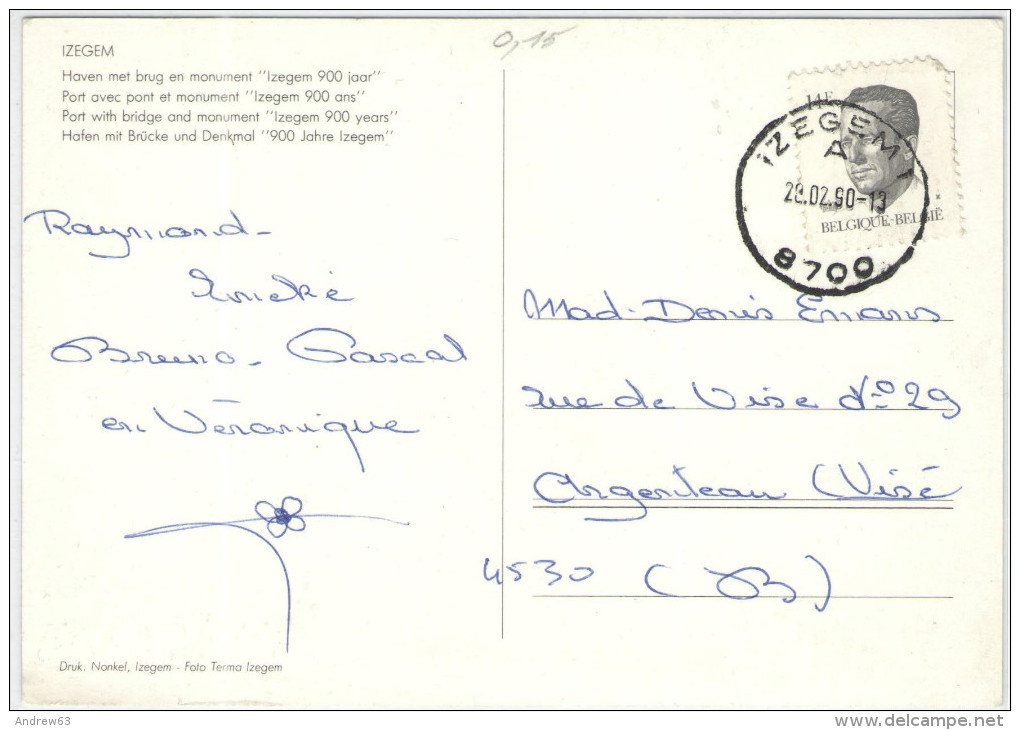 0,15
IZEGEM
Haven met brug en monument "Izegem 900 jaar"
Port avec pont et monument "Izegem 900 ans"
Port with bridge and monument "Izegem 900 years"
Hafen mit Brücke und Denkmal "900 Jahre Izegem"
14F
IZEGEM 1
A
28.02.90-13
8700
BELGIQUE-BELGIË
Raymond-
Bruno- Pascal
en Véronique
Mad. Denis Emans
rue de Vise No 29
Argenteau (Visé
4530 (B)
Druk. Nonkel, Izegem - Foto Terma Izegem
Andrew63
www.delcampe.net